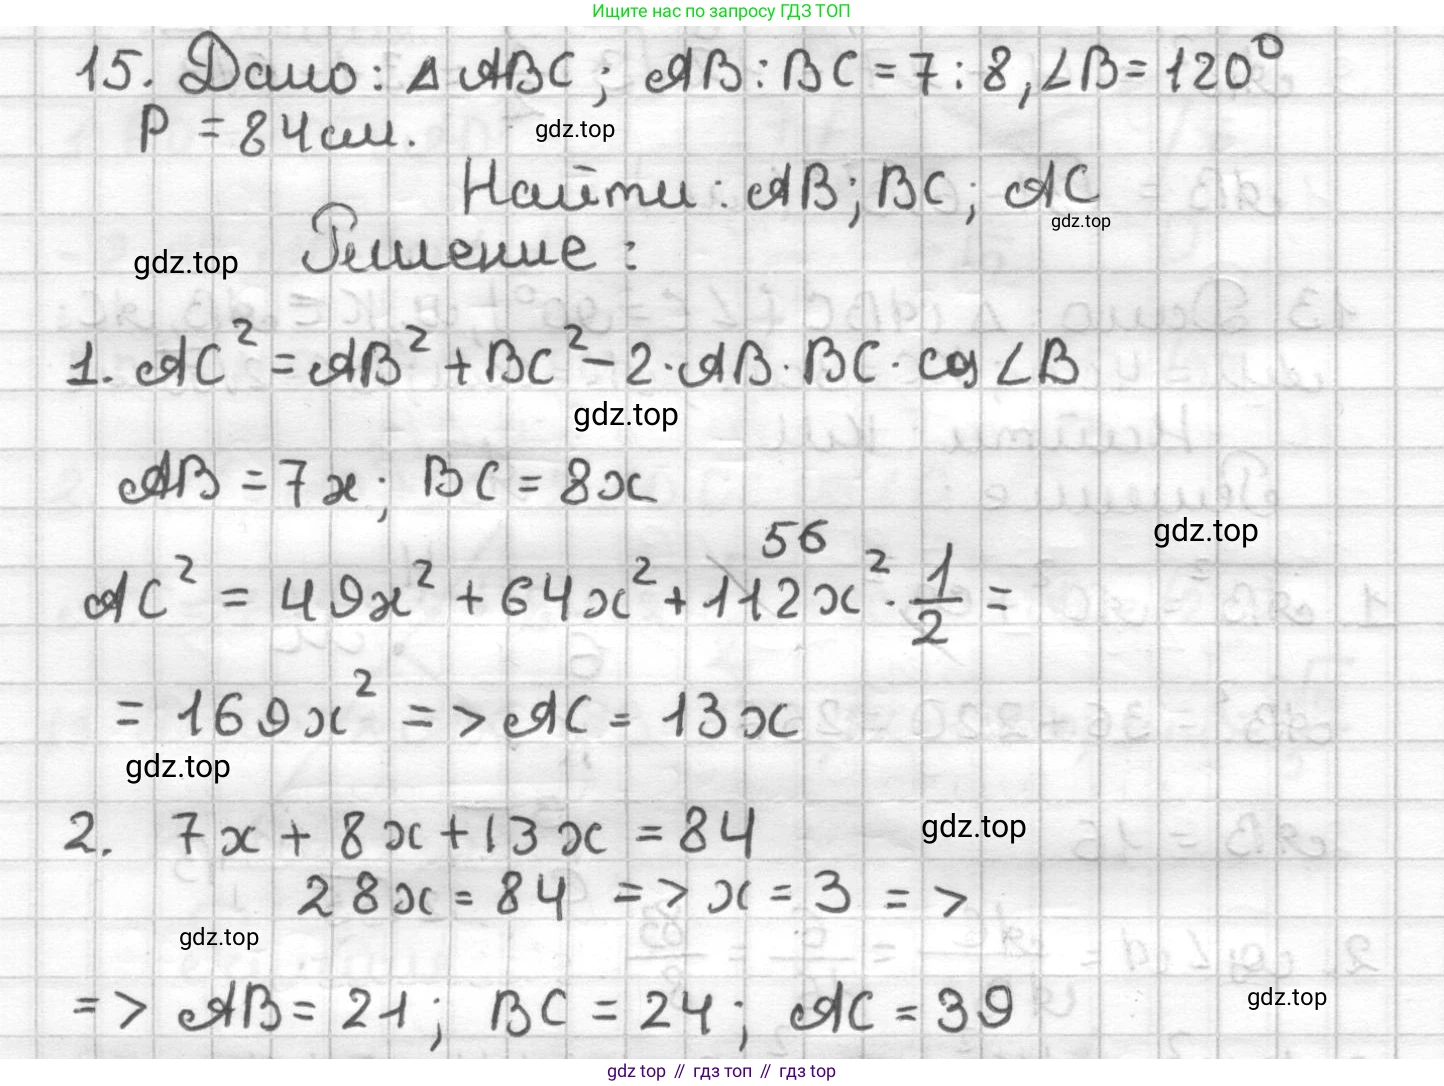 Ищите нас по запросу ГДЗ ТОП
15. Дано: △ ABC; AB : BC = 7 : 8, ∠B = 120°
P = 84 см.
gdz.top
Найти: AB; BC; AC
gdz.top
Решение:
gdz.top
1. AC² = AB² + BC² - 2 · AB · BC · cos ∠B
gdz.top
AB = 7x; BC = 8x
gdz.top
56
AC² = 49x² + 64x² + 112x² · 1/2 =
= 169x² => AC = 13x
gdz.top
2. 7x + 8x + 13x = 84
gdz.top
28x = 84 => x = 3 =>
gdz.top
=> AB = 21; BC = 24; AC = 39
gdz.top
gdz top // гдз топ // гдз top